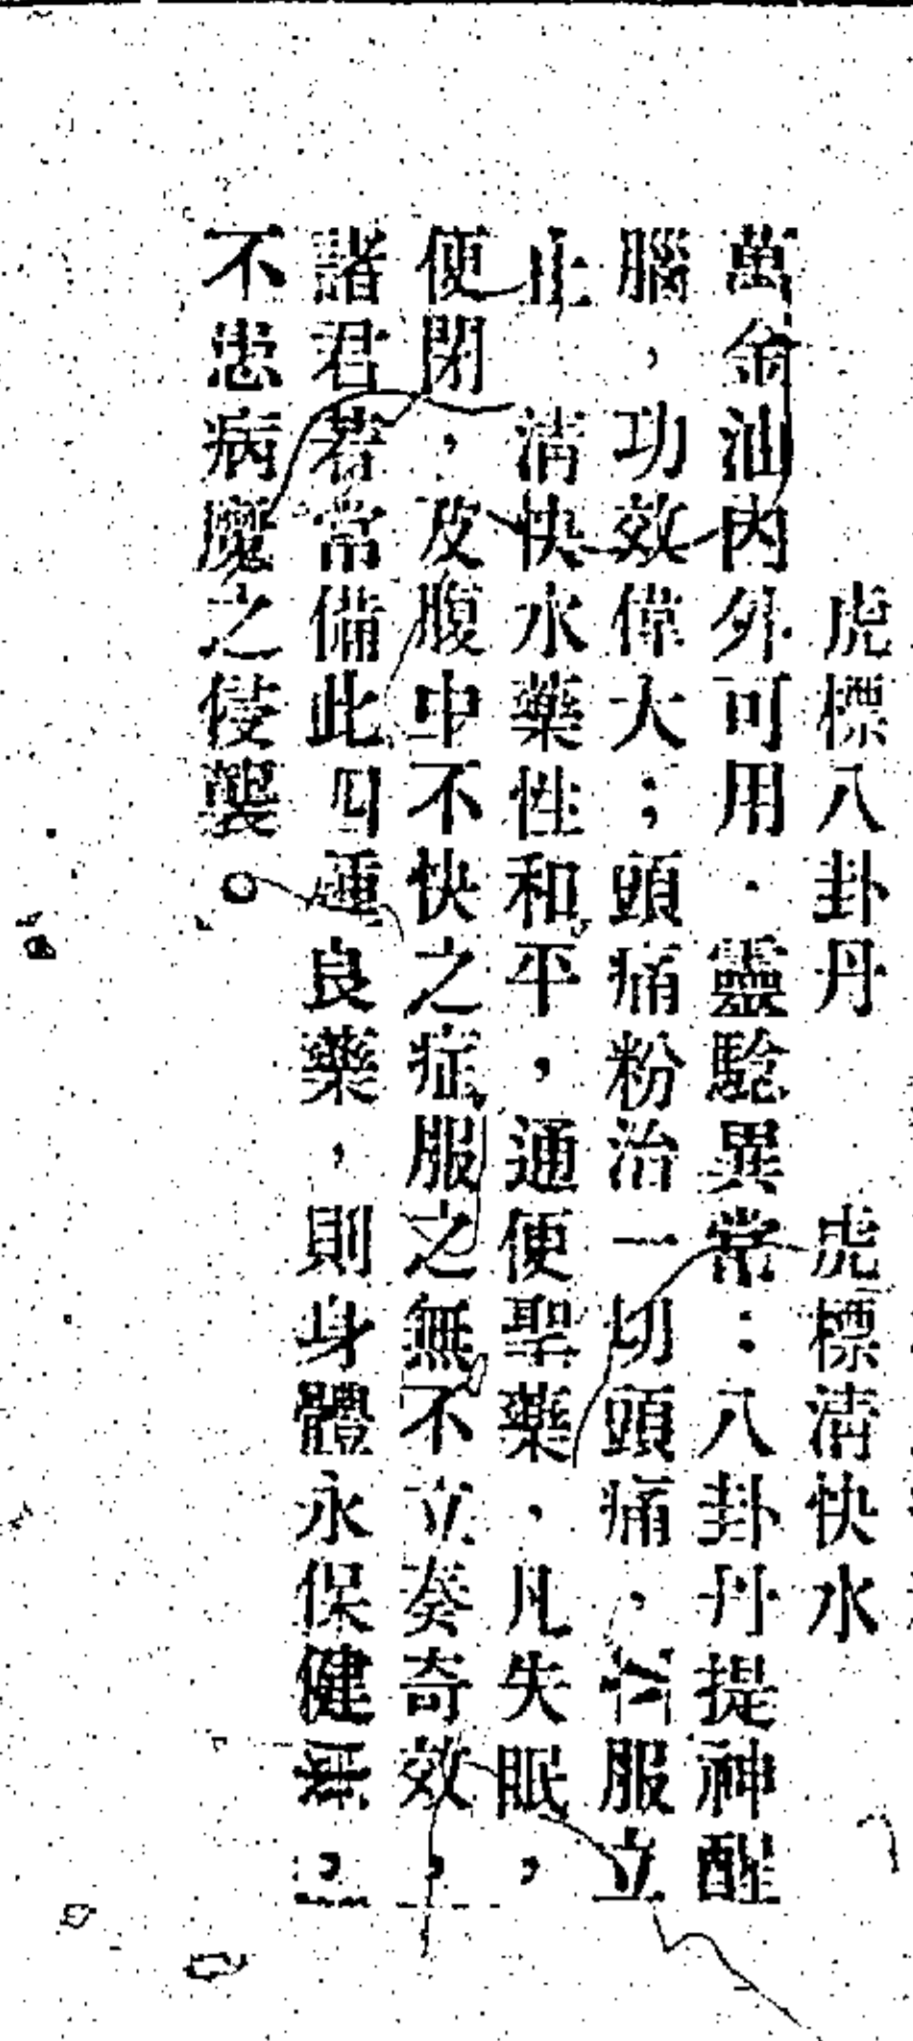 虎標八卦丹　虎標清快水
萬金油內外可用．靈驗異常：八卦丹提神醒
腦，功效偉大；頭痛粉治一切頭痛，服立
止　清快水藥性和平，通便聖藥，凡失眠，
便閉，及腹中不快之症服之無不立奏奇效，
諸君若常備此四種良藥，則身體永保健，
不患病魔之侵襲。